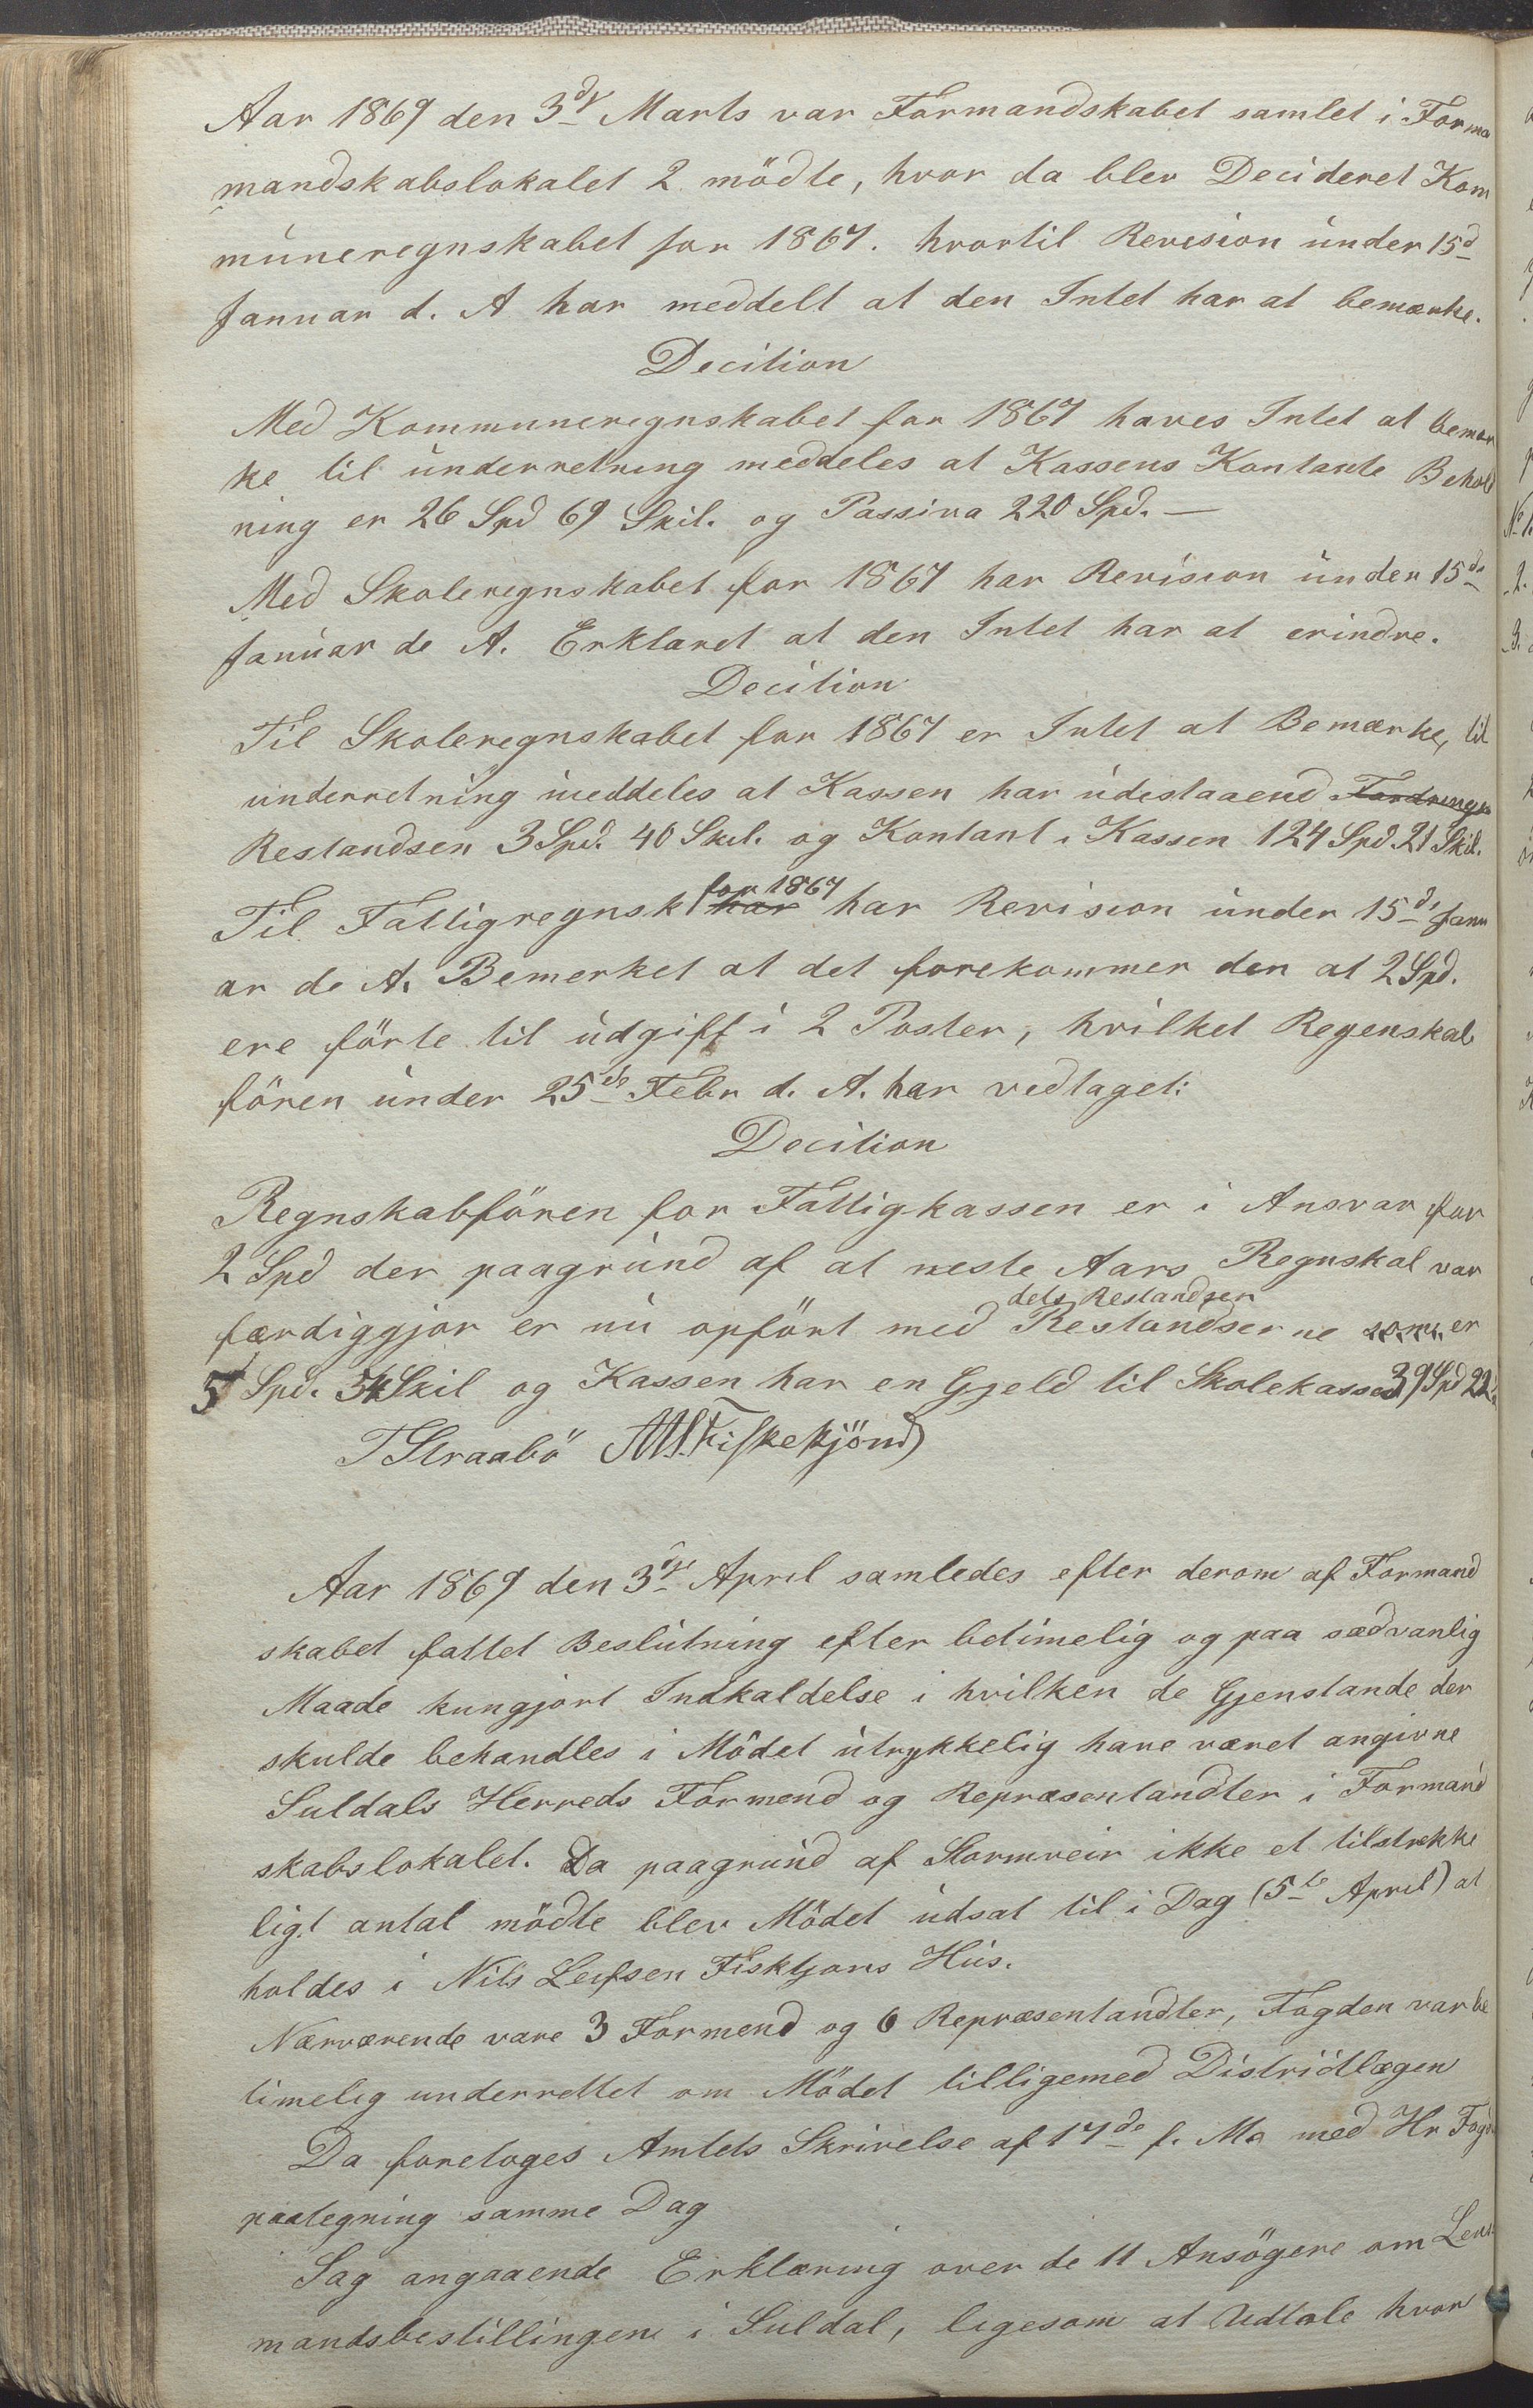 Aar 1869 den 3dje Marts var Formandskabet samlet i Forma
mandskabslokalet 2 mödte, hvor da blev Decideret Kom
muneregnskabet for 1867. hvortil Revision under 15d
Januar d. A har meddelt at den Intet har at bemærke.
Decition
Med Kommuneregnskabet for 1867 haves Intet at bemær
ke til underretning meddeles at Kassens Kontante Behold
ning er 26 Spd 69 Skil. og Passiva 220 Spd. —
Med Skoleregnskabet for 1867 har Revision under 15de
Januar de A. Erklaret at den Intet har at erindre.
Decition
Til Skoleregnskabet for 1867 er Intet at Bemærke, til
underretning meddeles at Kassen har udestaaend Fordringer
Restandsen 3 Spd. 40 Skil. og Kontant i Kassen 124 Spd. 21 Skil.
for 1867
Til Fattigregnsk har har Revision under 15de Janu
ar de A. Bemerket at det forekommer den at 2 Spd.
ere förte til udgift i 2 Poster, hvilket Regenskab
fören under 25de Febr d. A. har vedtaget:
Decition
Regnskabfören for Fattigkassen er i Ansvar for
2 Spd der paagrund af at neste Aars Regnskal var
dets Restandser
færdiggjor er nu opfört med Restandserne som er
5 Spd. 34 Skil og Kassen har en Gjeld til Skolekassen 39 Spd 22
T Straabö Fiskekjönd
Aar 1869 den 3dje April samledes efter derom af Formand
skabet fattet Beslutning efter betimelig og paa sædvanlig
Maade kungjort Indkaldelse i hvilken de Gjenstande der
skulde behandles i Mödet utrykkelig have været angivne
Suldals Herreds Formend og Repræsentandter i Formand
skabslokalet. Da paagrund af Stormveir ikke et tilstrekke
ligt antal mödte blev Mödet udsat til i Dag (5te April) at
holdes i Nils Leifsen Fisktjons Hus.
Nærværende vare 3 Formend og 6 Repræsentandter, Fogden var be
timelig underrettet om Mödet tilligemed Distriktlægen
Da foretoges Amtets Skrivelse af 17de f. M. med Hr Fogd
paategning samme Dag
Sag angaaende Erklæring over de 11 Ansögere om Lens
mandsbestillingen i Suldal, ligesom at Udtale hvor